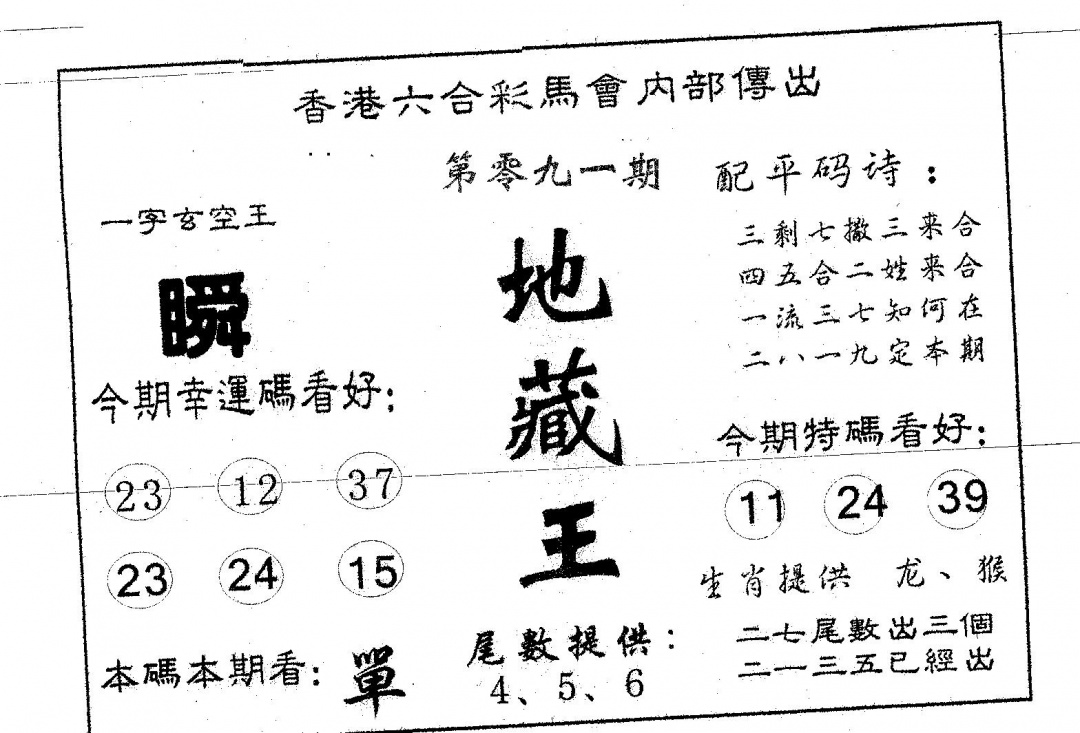 香港六合彩馬會內部傳出
第零九一期
一字玄空王
瞬
今期幸運碼看好：
23 12 37
23 24 15
本碼本期看：單
地
藏
王
尾數提供：
4、5、6
配平码诗：
三剩七撒三来合
四五合二姓来合
一流三七知何在
二八一九定本期
今期特碼看好：
11 24 39
生肖提供 龙、猴
二七尾數出三個
二一三五已經出